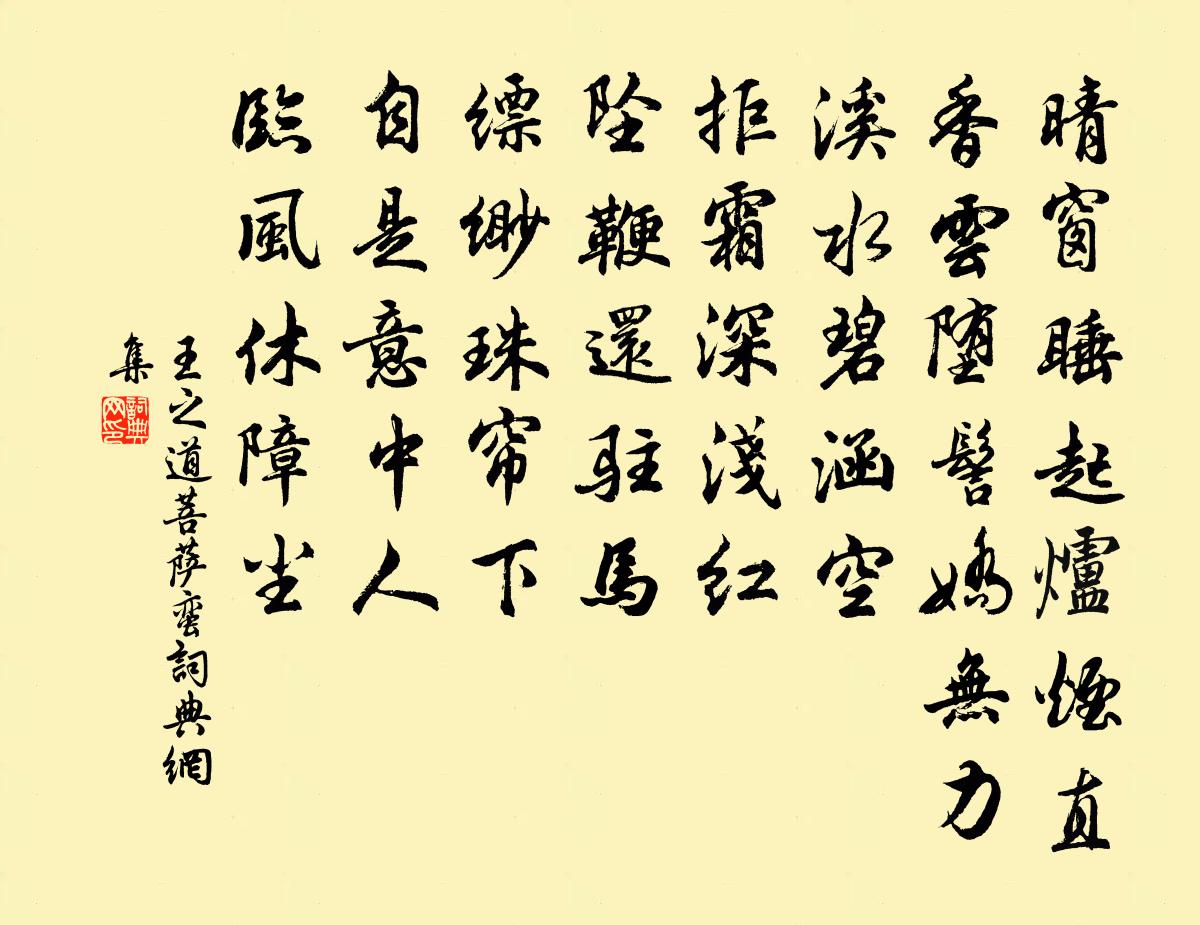 晴窗睡起爐煙直
香雲堕髻嬌無力
溪水碧涵空
拒霜深淺紅
坠鞭還駐馬
缥缈珠帘下
自是意中人
臨風休障尘
王之道菩萨蛮詞典網
集
詞典
网印